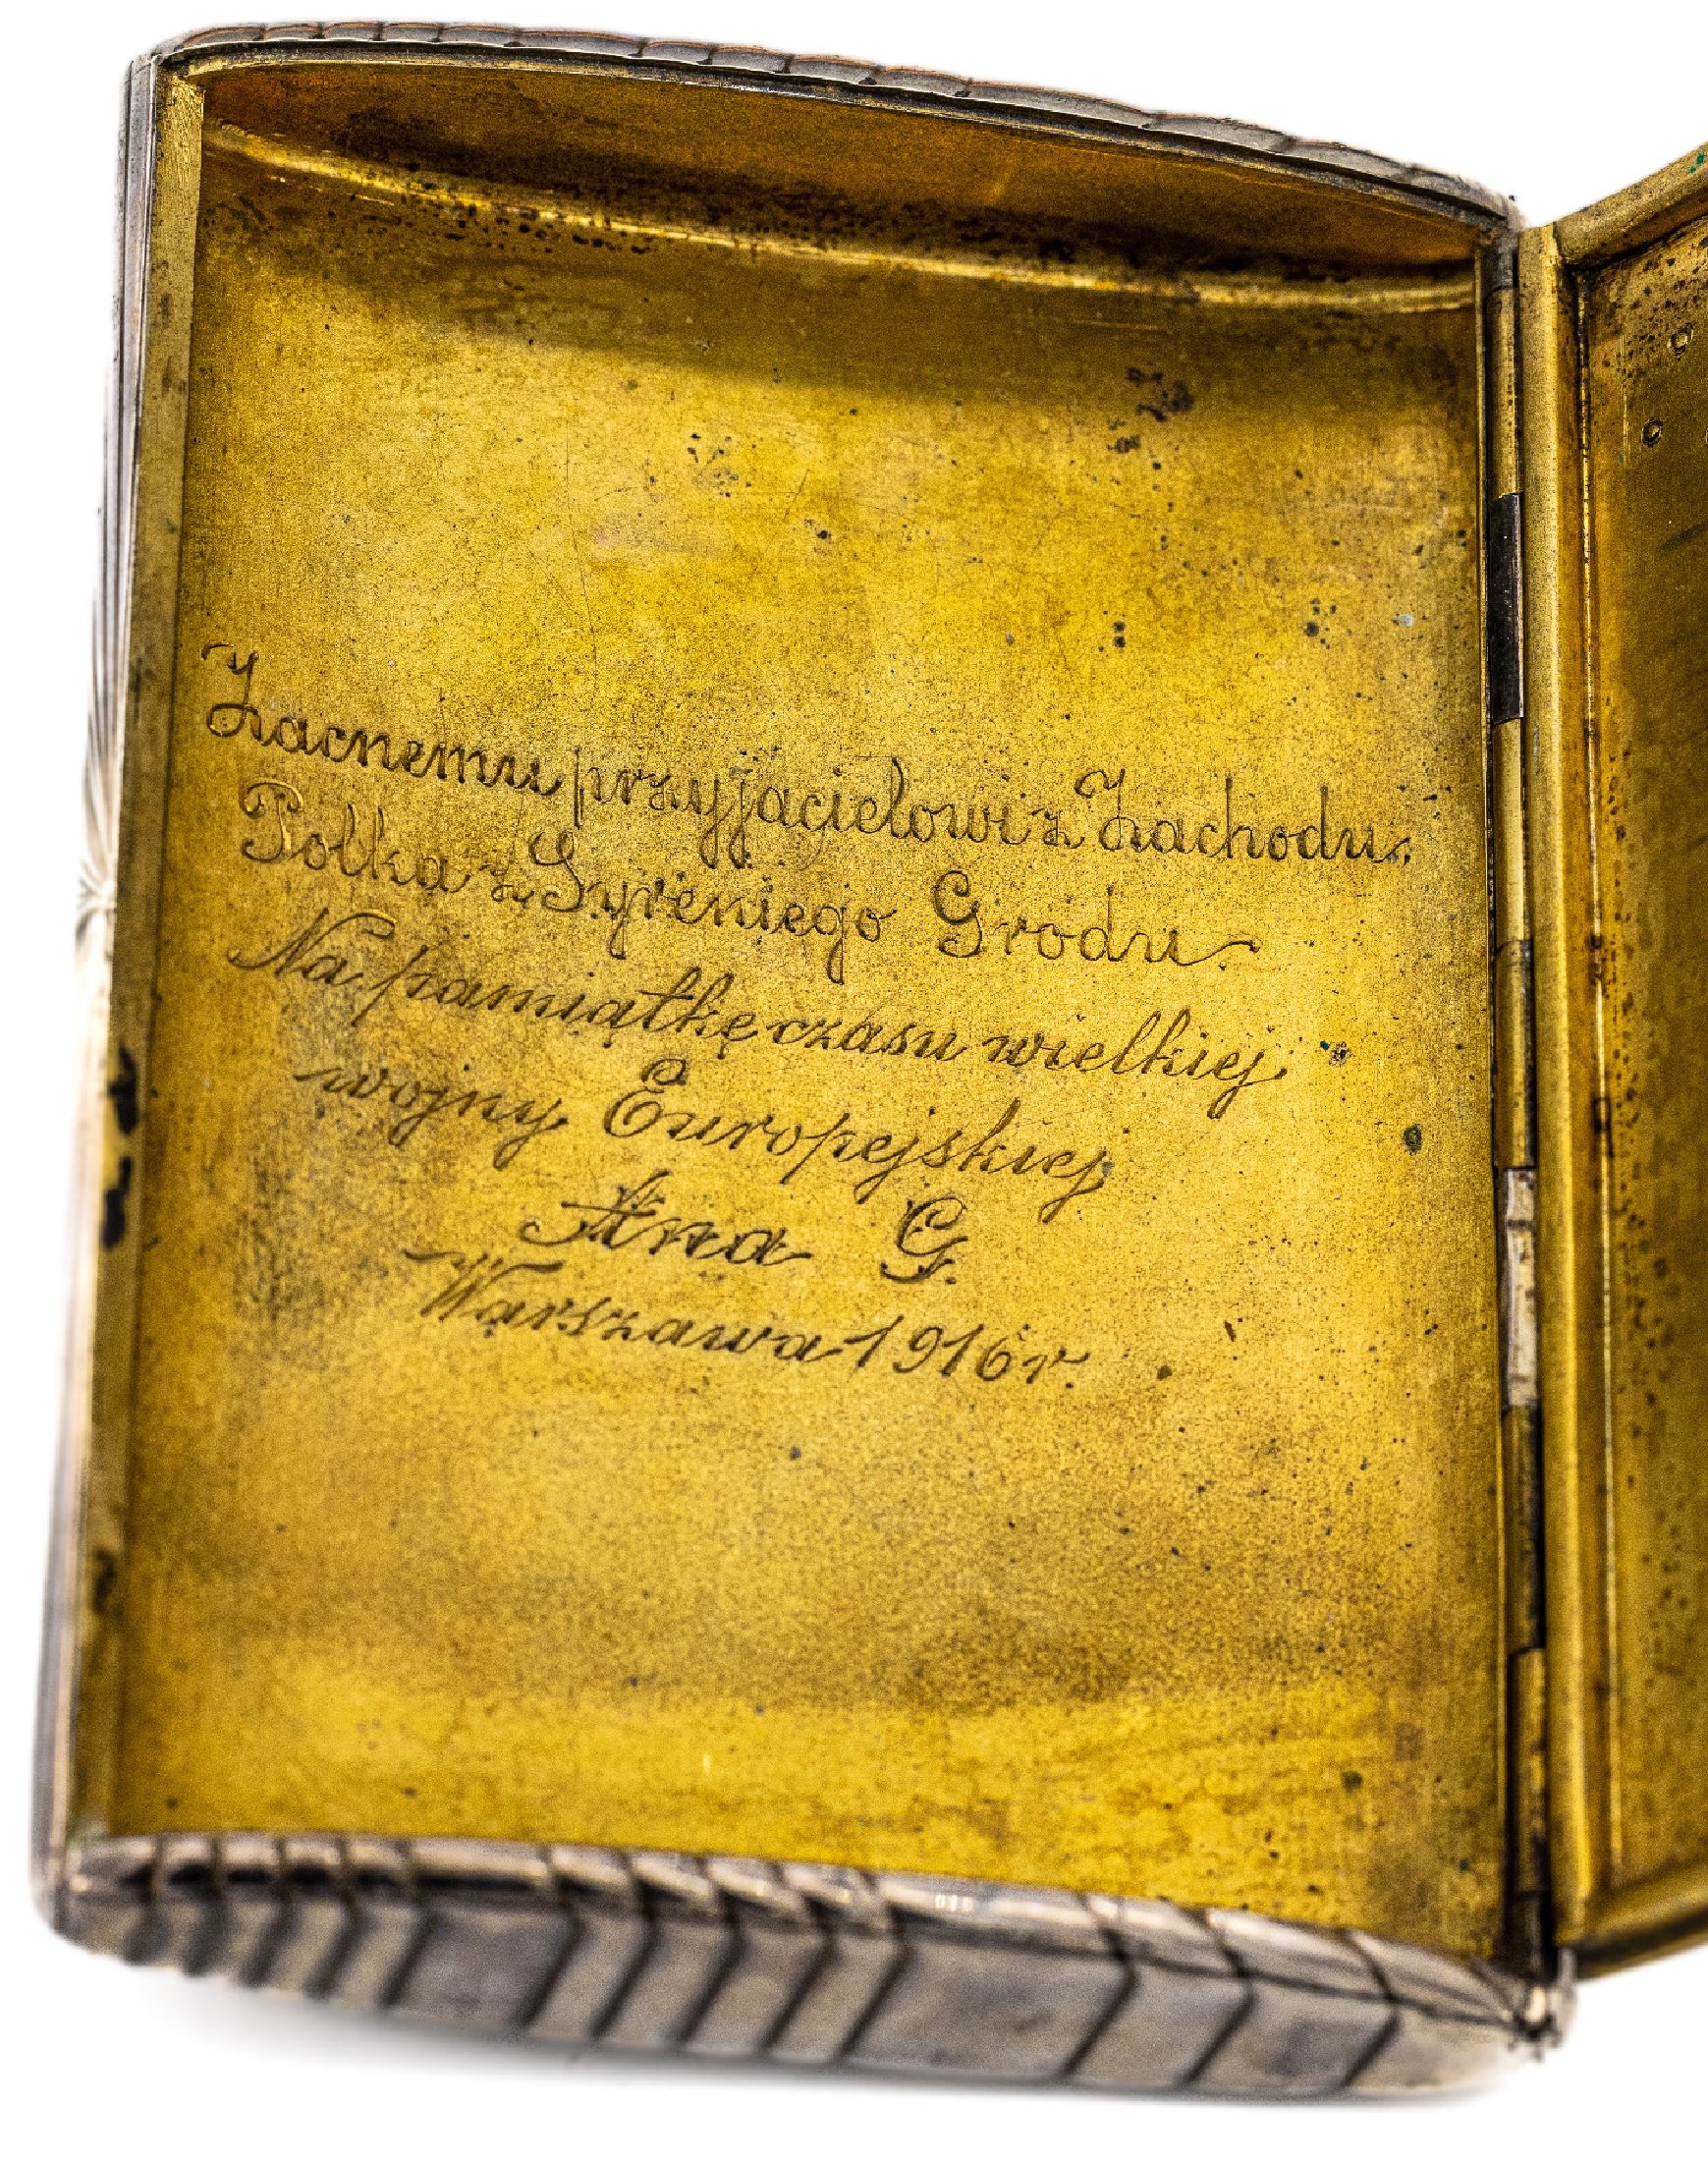 Zacnemu przyjacielowi z Zachodu.
Polka z Syreniego Grodu
Na pamiątkę czasu wielkiej
wojny Europejskiej
Ana G.
Warszawa 1916 r.